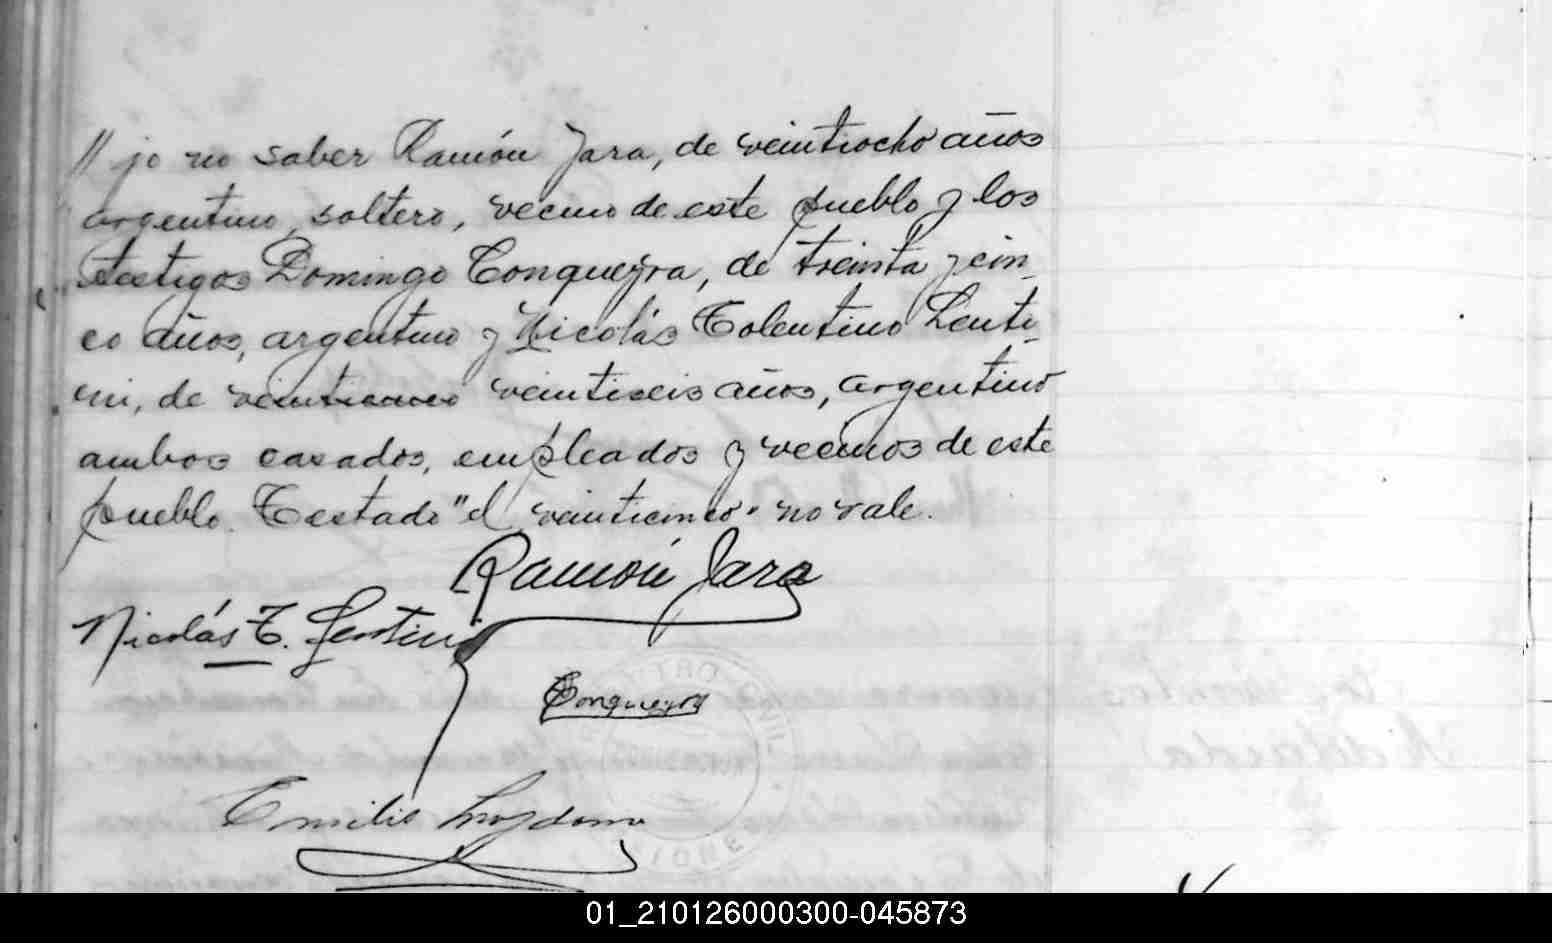 // jo no saber Ramón Jara, de veintiocho años
argentino, soltero, vecino de este pueblo y los
testigos Domingo Conqueyra, de treinta y cin_
co años, argentino y Nicolás Tolentino Lenti_
ni, de veinticinco veintiseis años, argentino
ambos casados, empleados y vecinos de este
pueblo. Testado "el veinticinco" no vale.
Ramón Jara
Nicolás T. Lentini
Conqueyra
Emilio
01_210126000300-045873